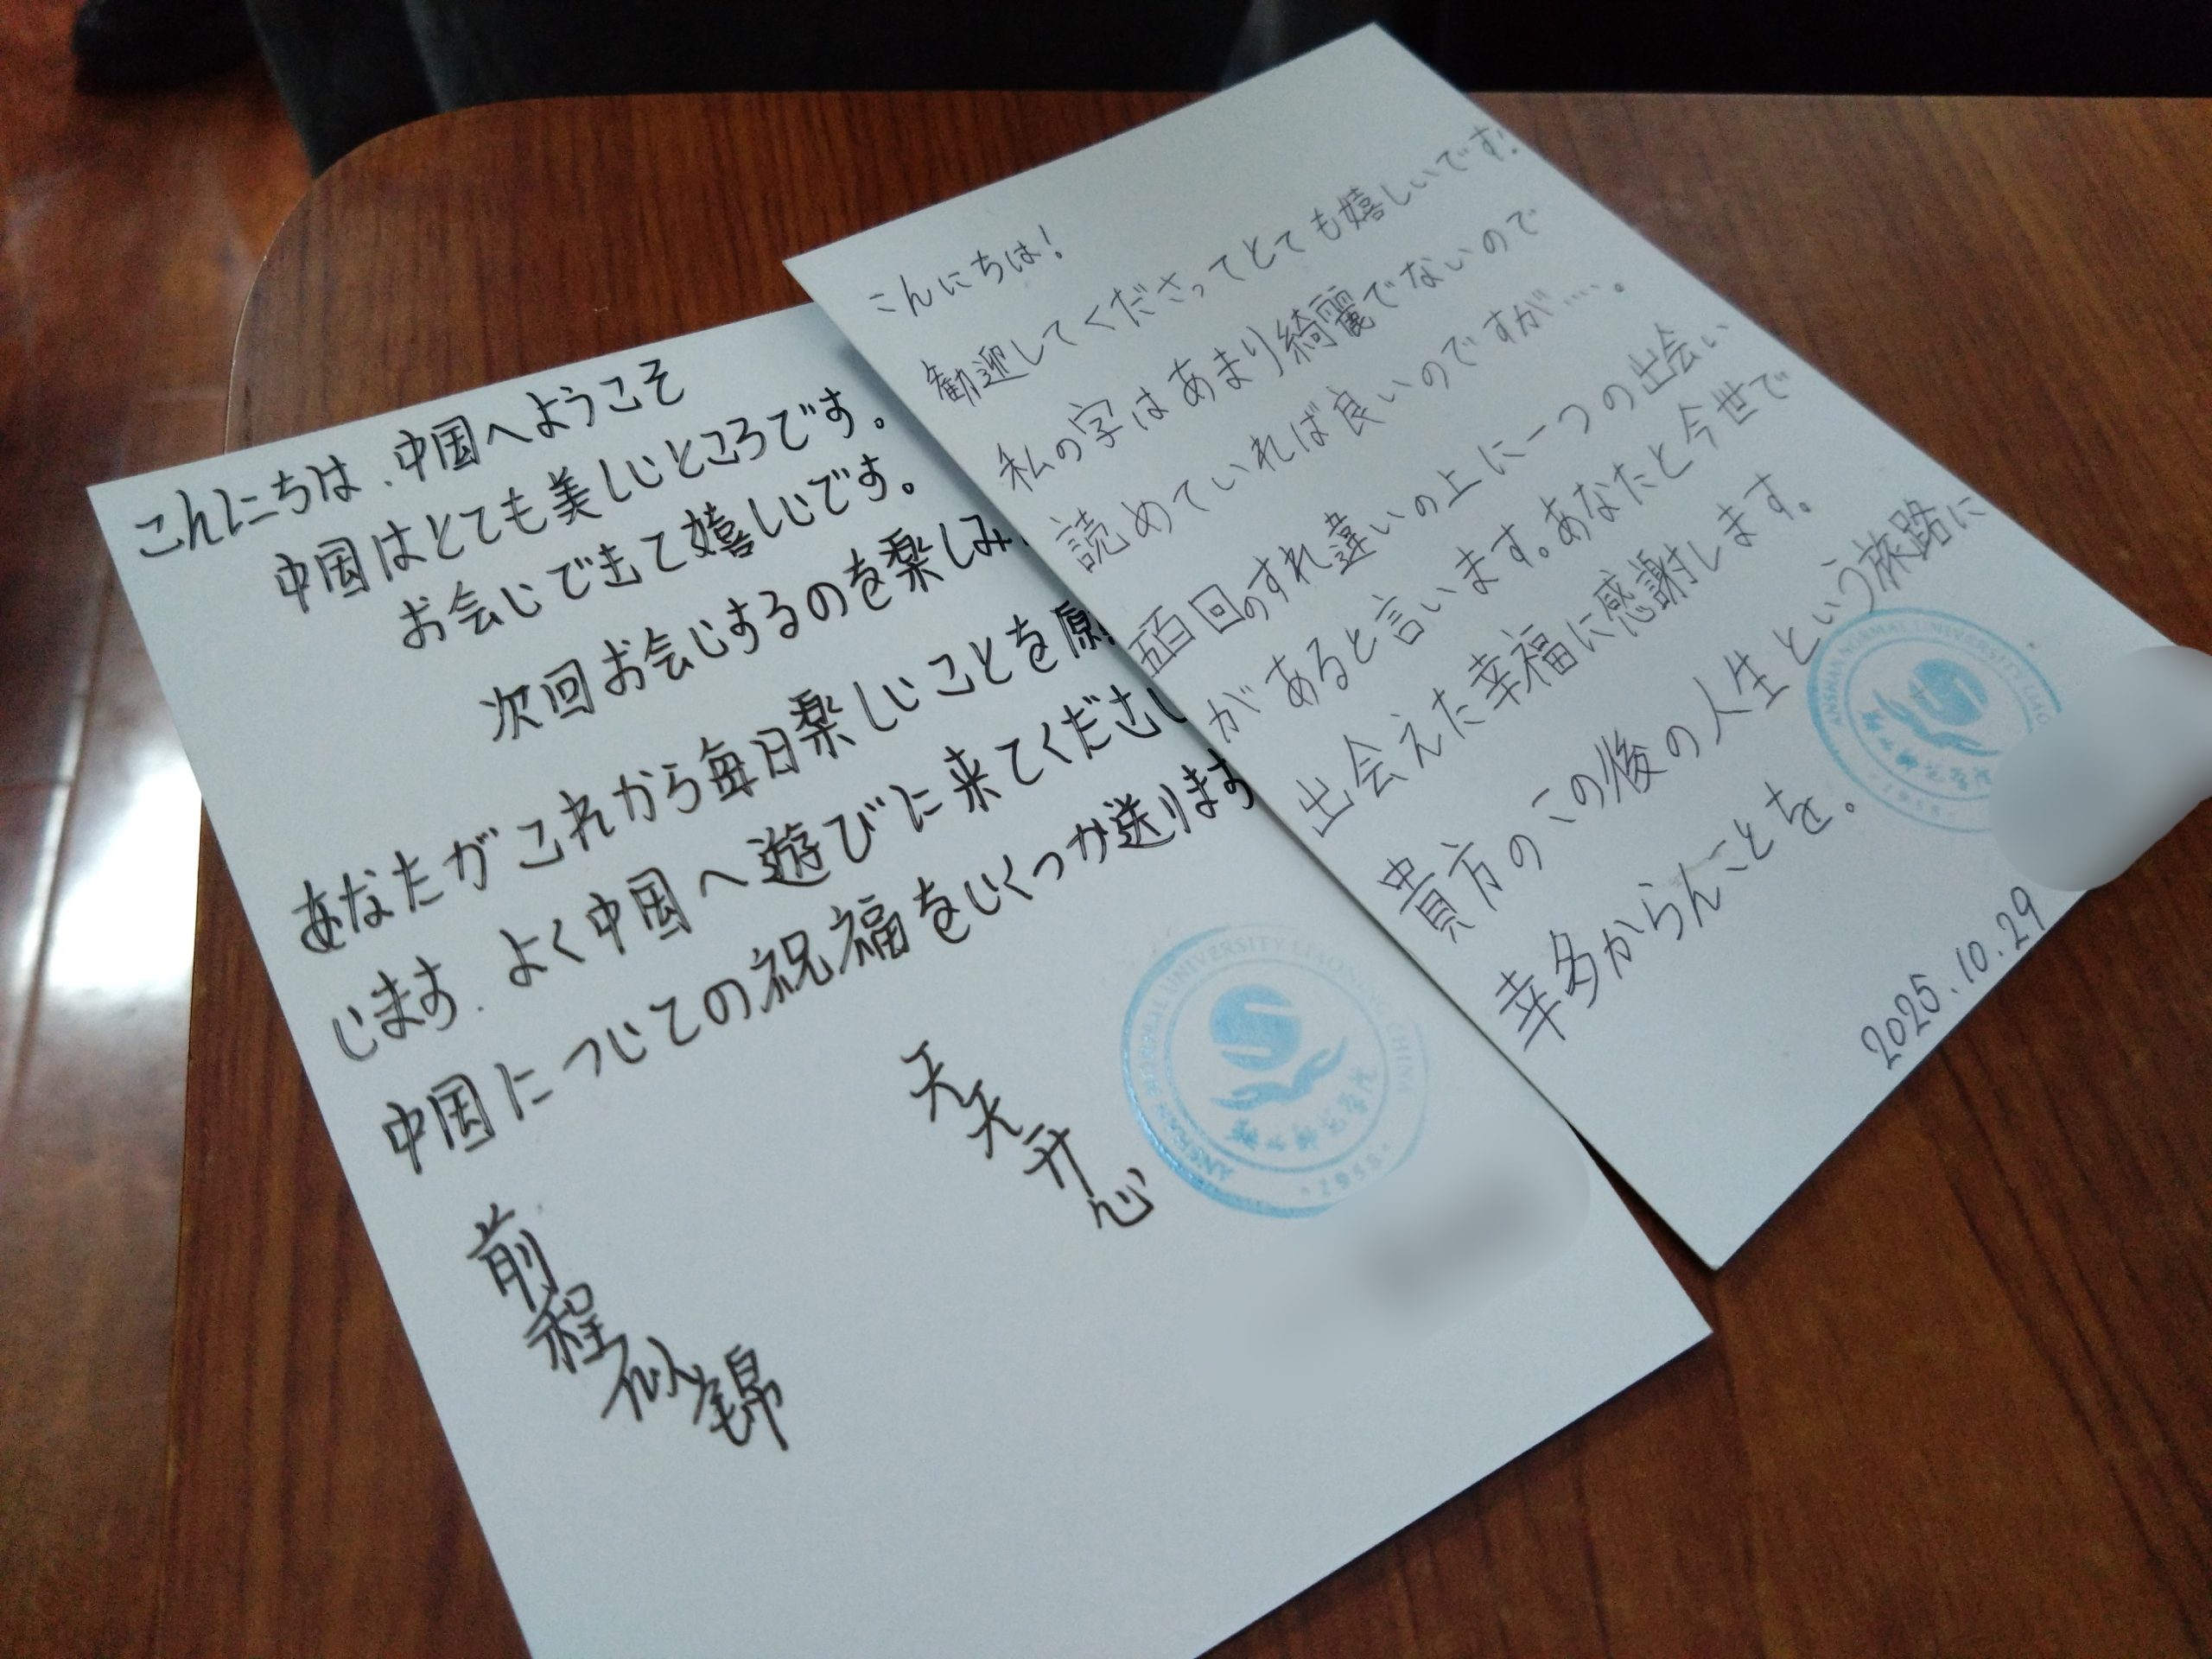 こんにちは、中国へようこそ
中国はとても美しいところです。
お会いできて嬉しいです。
次回お会いするのを楽しみ
あなたがこれから毎日楽しいことを願
います、よく中国へ遊びに来てくださし
中国についての祝福をいくつか送ります
天天开心
前程似锦
ANSHAN NORMAL UNIVERSITY LIAONING CHINA
鞍山师范学院
1958
こんにちは!
歓迎してくださってとても嬉しいです!
私の字はあまり綺麗でないので
読めていれば良いのですが….。
五百回のすれ違いの上に一つの出会い
があると言います。あなたと今世で
出会えた幸福に感謝します。
貴方のこの後の人生という旅路に
幸多からんことを。
ANSHAN NORMAL UNIVERSITY LIAO
鞍山师范学院
1958
2025.10.29